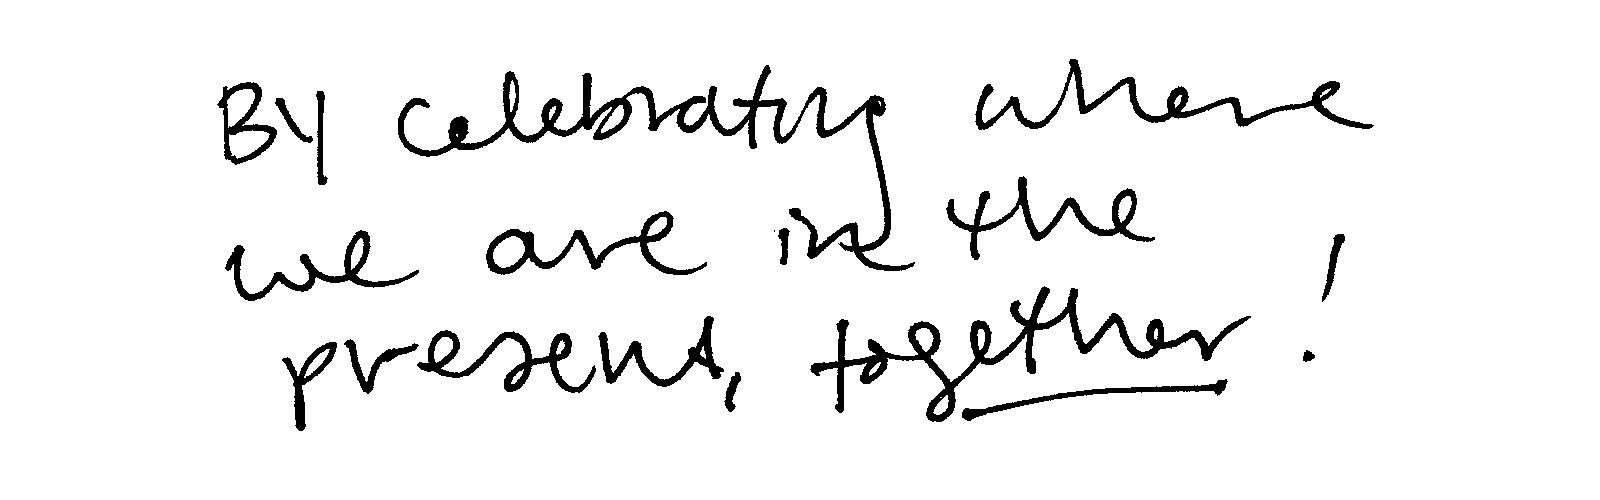 By celebrating where
we are in the
present, together!